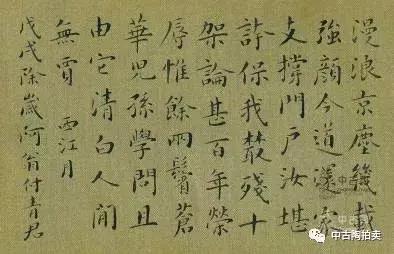 漫浪京塵幾載
強顏今道還家
支撐門戶汝堪
誇保我叢殘十
架論甚百年榮
辱惟餘兩鬢蒼
華兒孫學問且
由它清白人間
無賈 西江月
戊戌除歲阿翁付青君
中古陶
中古陶拍卖